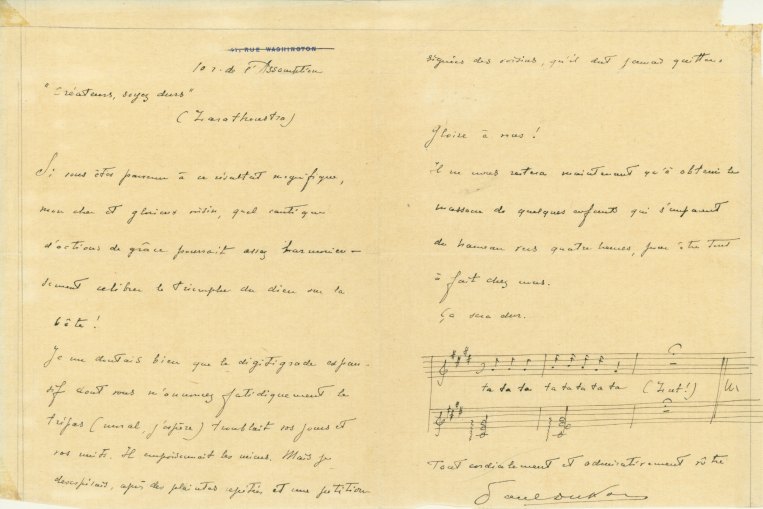 RUE WASHINGTON
10 r. de l'Assomption
"Créateurs, soyez durs"
(Zarathoustra)
Si vous êtes parvenu à ce résultat magnifique,
mon cher et glorieux voisin, quel cantique
d'actions de grâce pourrait assez harmonieu-
sement célébrer le triomphe du dieu sur la
bête!
Je me doutais bien que le digitigrade expan-
sif dont vous m'annoncez fatidiquement le
trépas (moral, j'espère) troublait vos jours et
vos nuits. Il empoisonnait les miens. Mais je
désespérais, après des plaintes et une pétition
signées des voisins, qu'il dut jamais
Gloire à vous!
Il ne nous restera maintenant qu'à obtenir le
massacre de quelques enfants qui s'emparent
du hameau vers quatre heures, pour être tout
à fait chez nous.
Ça sera dur.
ta ta ta ta ta ta ta ta (Zut!)
Tout cordialement et admirativement vôtre
Paul Dukas